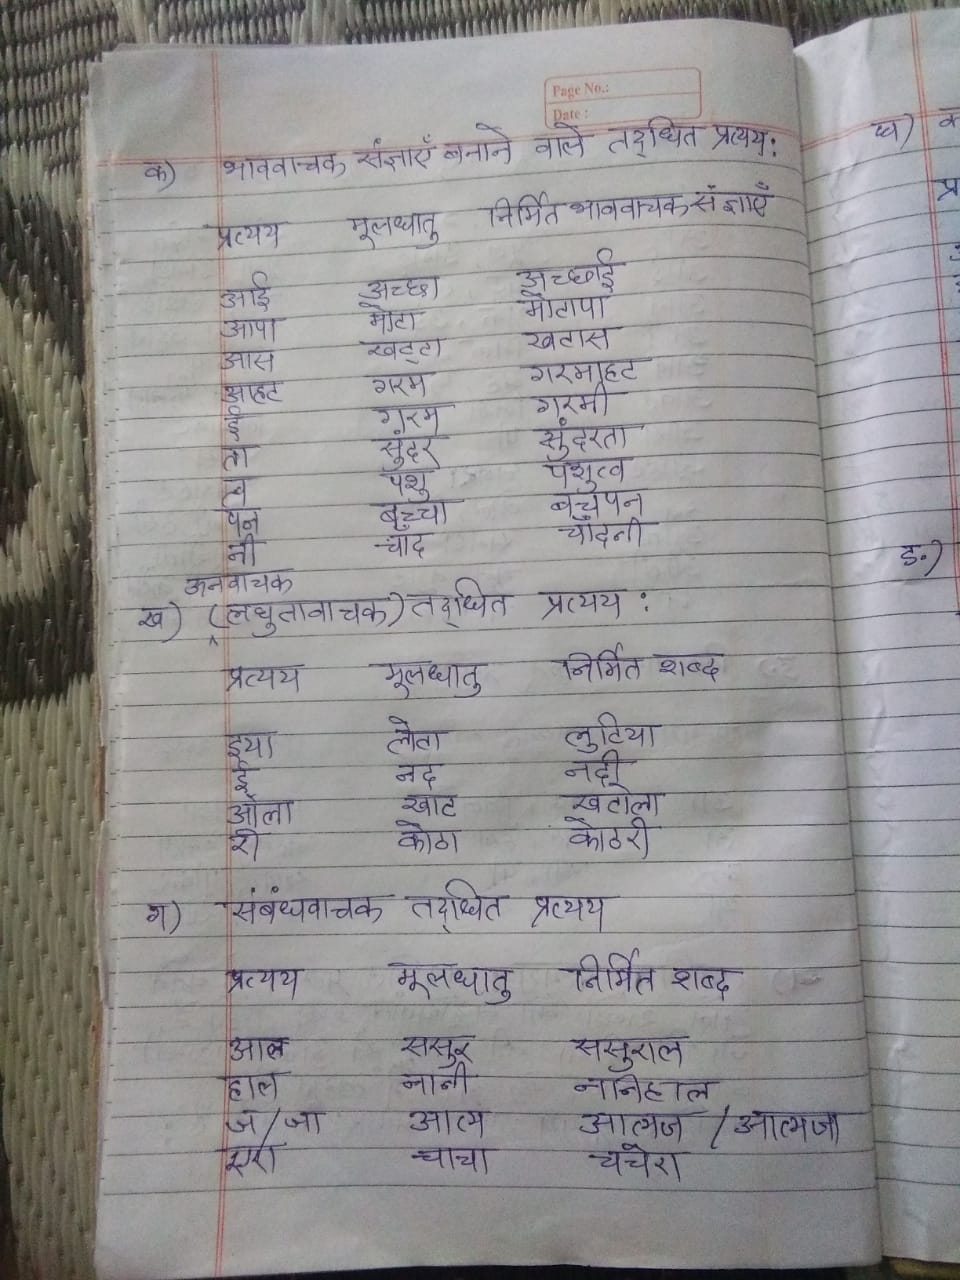 Page No.:
Date :
क) भाववाचक संज्ञाएँ बनाने वाले तद्धित प्रत्यय:
प्रत्यय मूलधातु निर्मित भाववाचक संज्ञाएँ
आई अच्छा अच्छाई
आपा मोटा मोटापा
आस खट्टा खटास
आहट गरम गरमाहट
ई गरम गरमी
ता सुंदर सुंदरता
त्व पशु पशुत्व
पन बच्चा बचपन
नी चाँद चाँदनी
ऊनवाचक
ख) (लघुतावाचक) तद्धित प्रत्यय :
प्रत्यय मूलधातु निर्मित शब्द
इया लोटा लुटिया
ई नद नदी
ओला खाट खटोला
री कोठा कोठरी
ग) संबंधवाचक तद्धित प्रत्यय
प्रत्यय मूलधातु निर्मित शब्द
आल ससुर ससुराल
हाल नानी ननिहाल
ज/जा आत्म आत्मज / आत्मजा
एरा चाचा चचेरा
घ)
ङ)